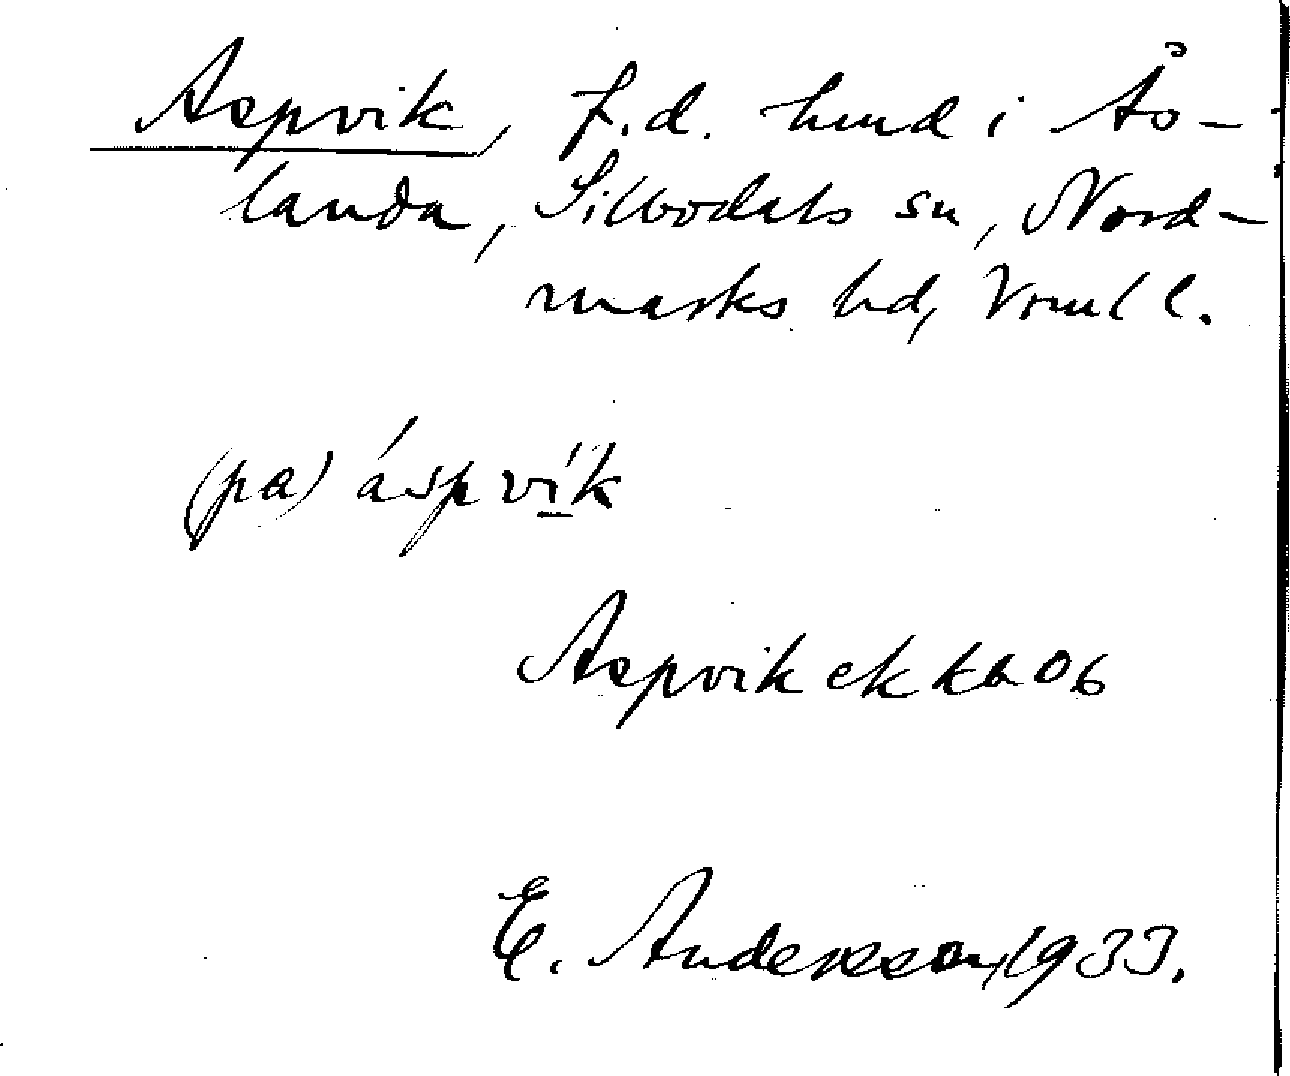 Aspvik, f.d. hmd i Ås-
landa, Silbodals sn, Nord-
marks hd, Vrml l.
(pa) áspvík
Aspvik ek kb 06
E. Andersson, 1933.